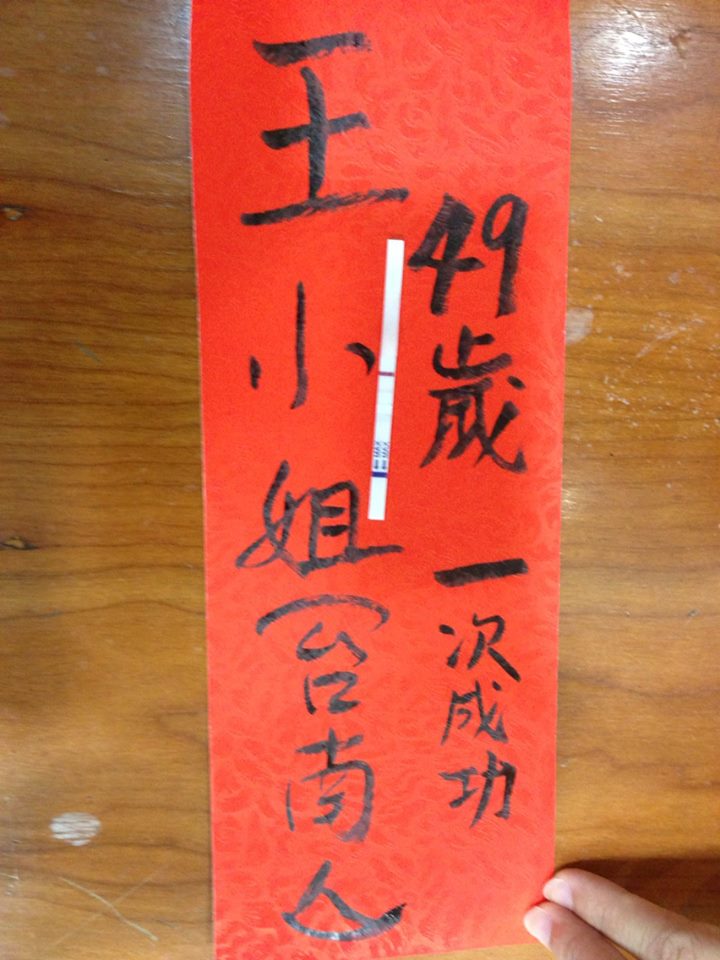 49歲 一次成功
王小姐(台南人)